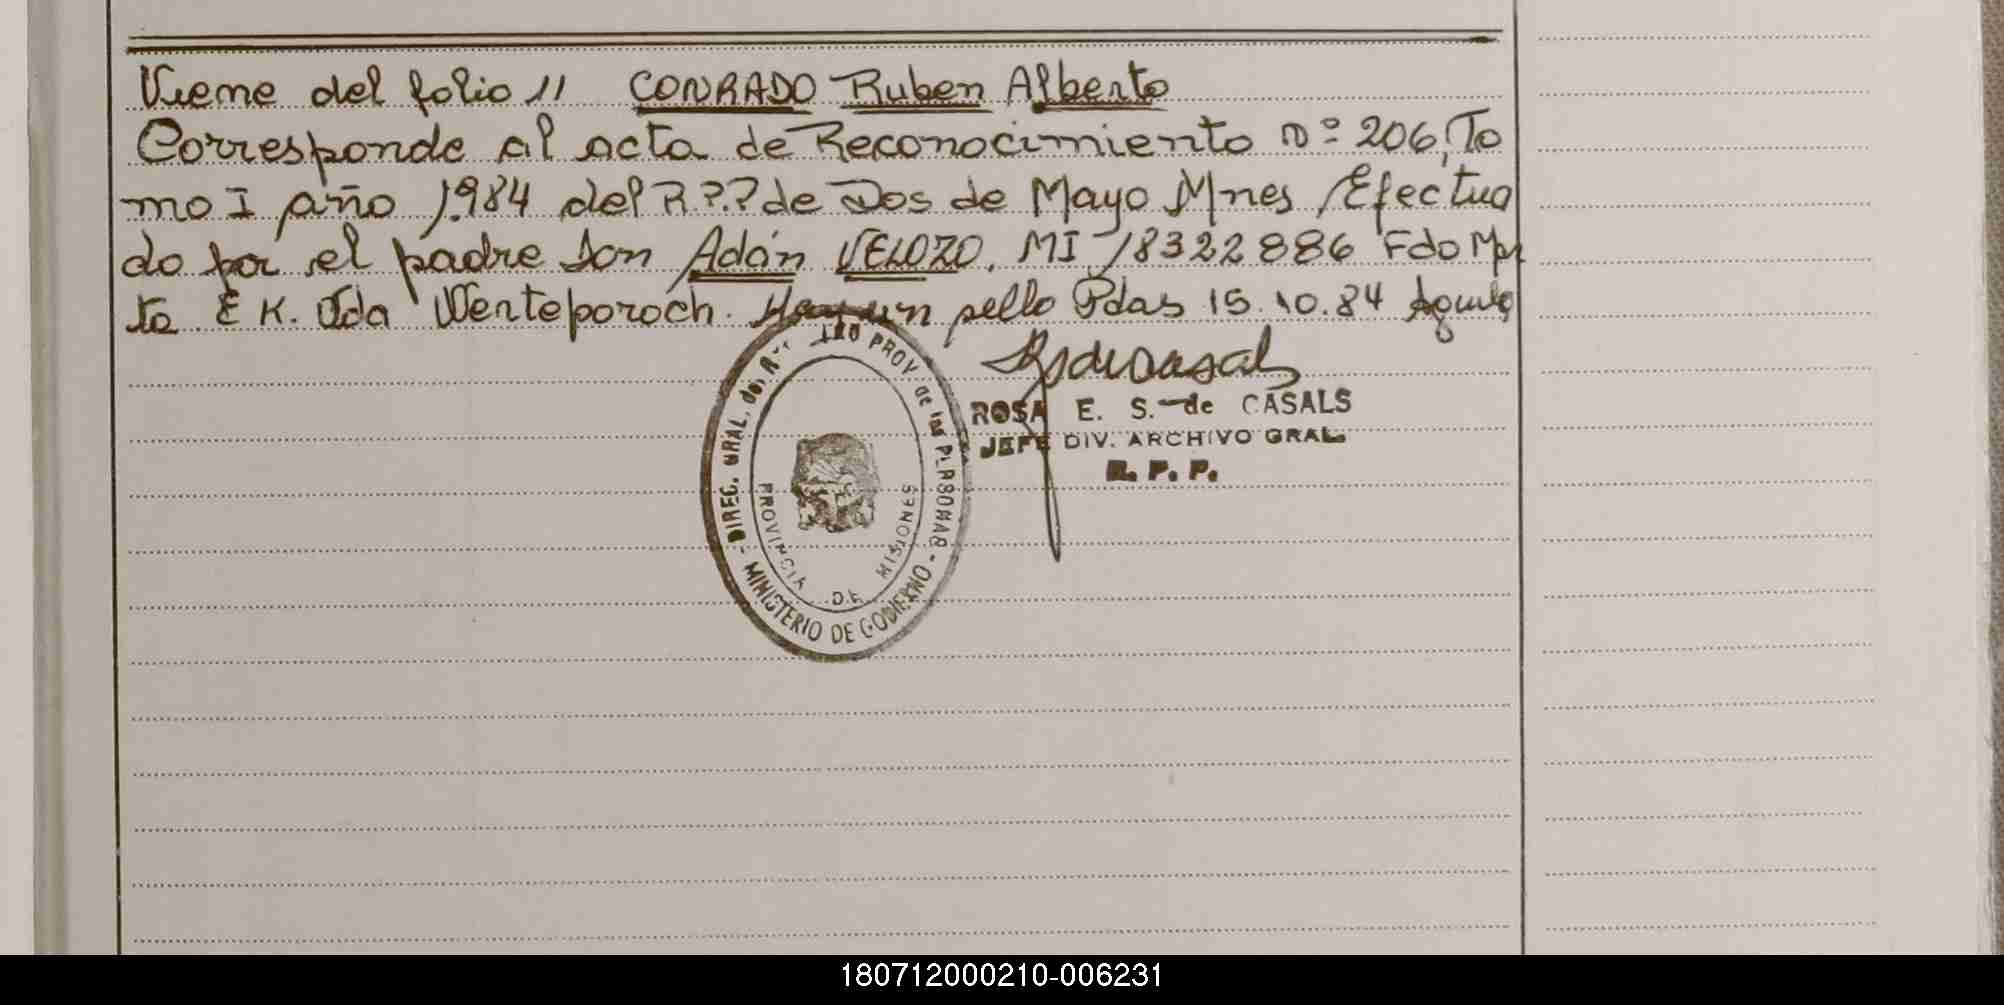 Viene del folio 11 CONRADO Ruben Alberto
Corresponde al acta de Reconocimiento nº 206, To
mo I año 1.984 del R.P.P de Dos de Mayo Mnes, Efectua
do por el padre Don Adán VELOZO. MI 18322886 Fdo Mar
ta E K. Vda Wenteporoch. Hay un sello Pdas 15.10.84
ROSA E. S. de CASALS
JEFE DIV. ARCHIVO GRAL.
R. P. P.
DIREC. GRAL. del PROV de las PERSONAS - MINISTERIO DE GOBIERNO -
PROVINCIA DE MISIONES
180712000210-006231